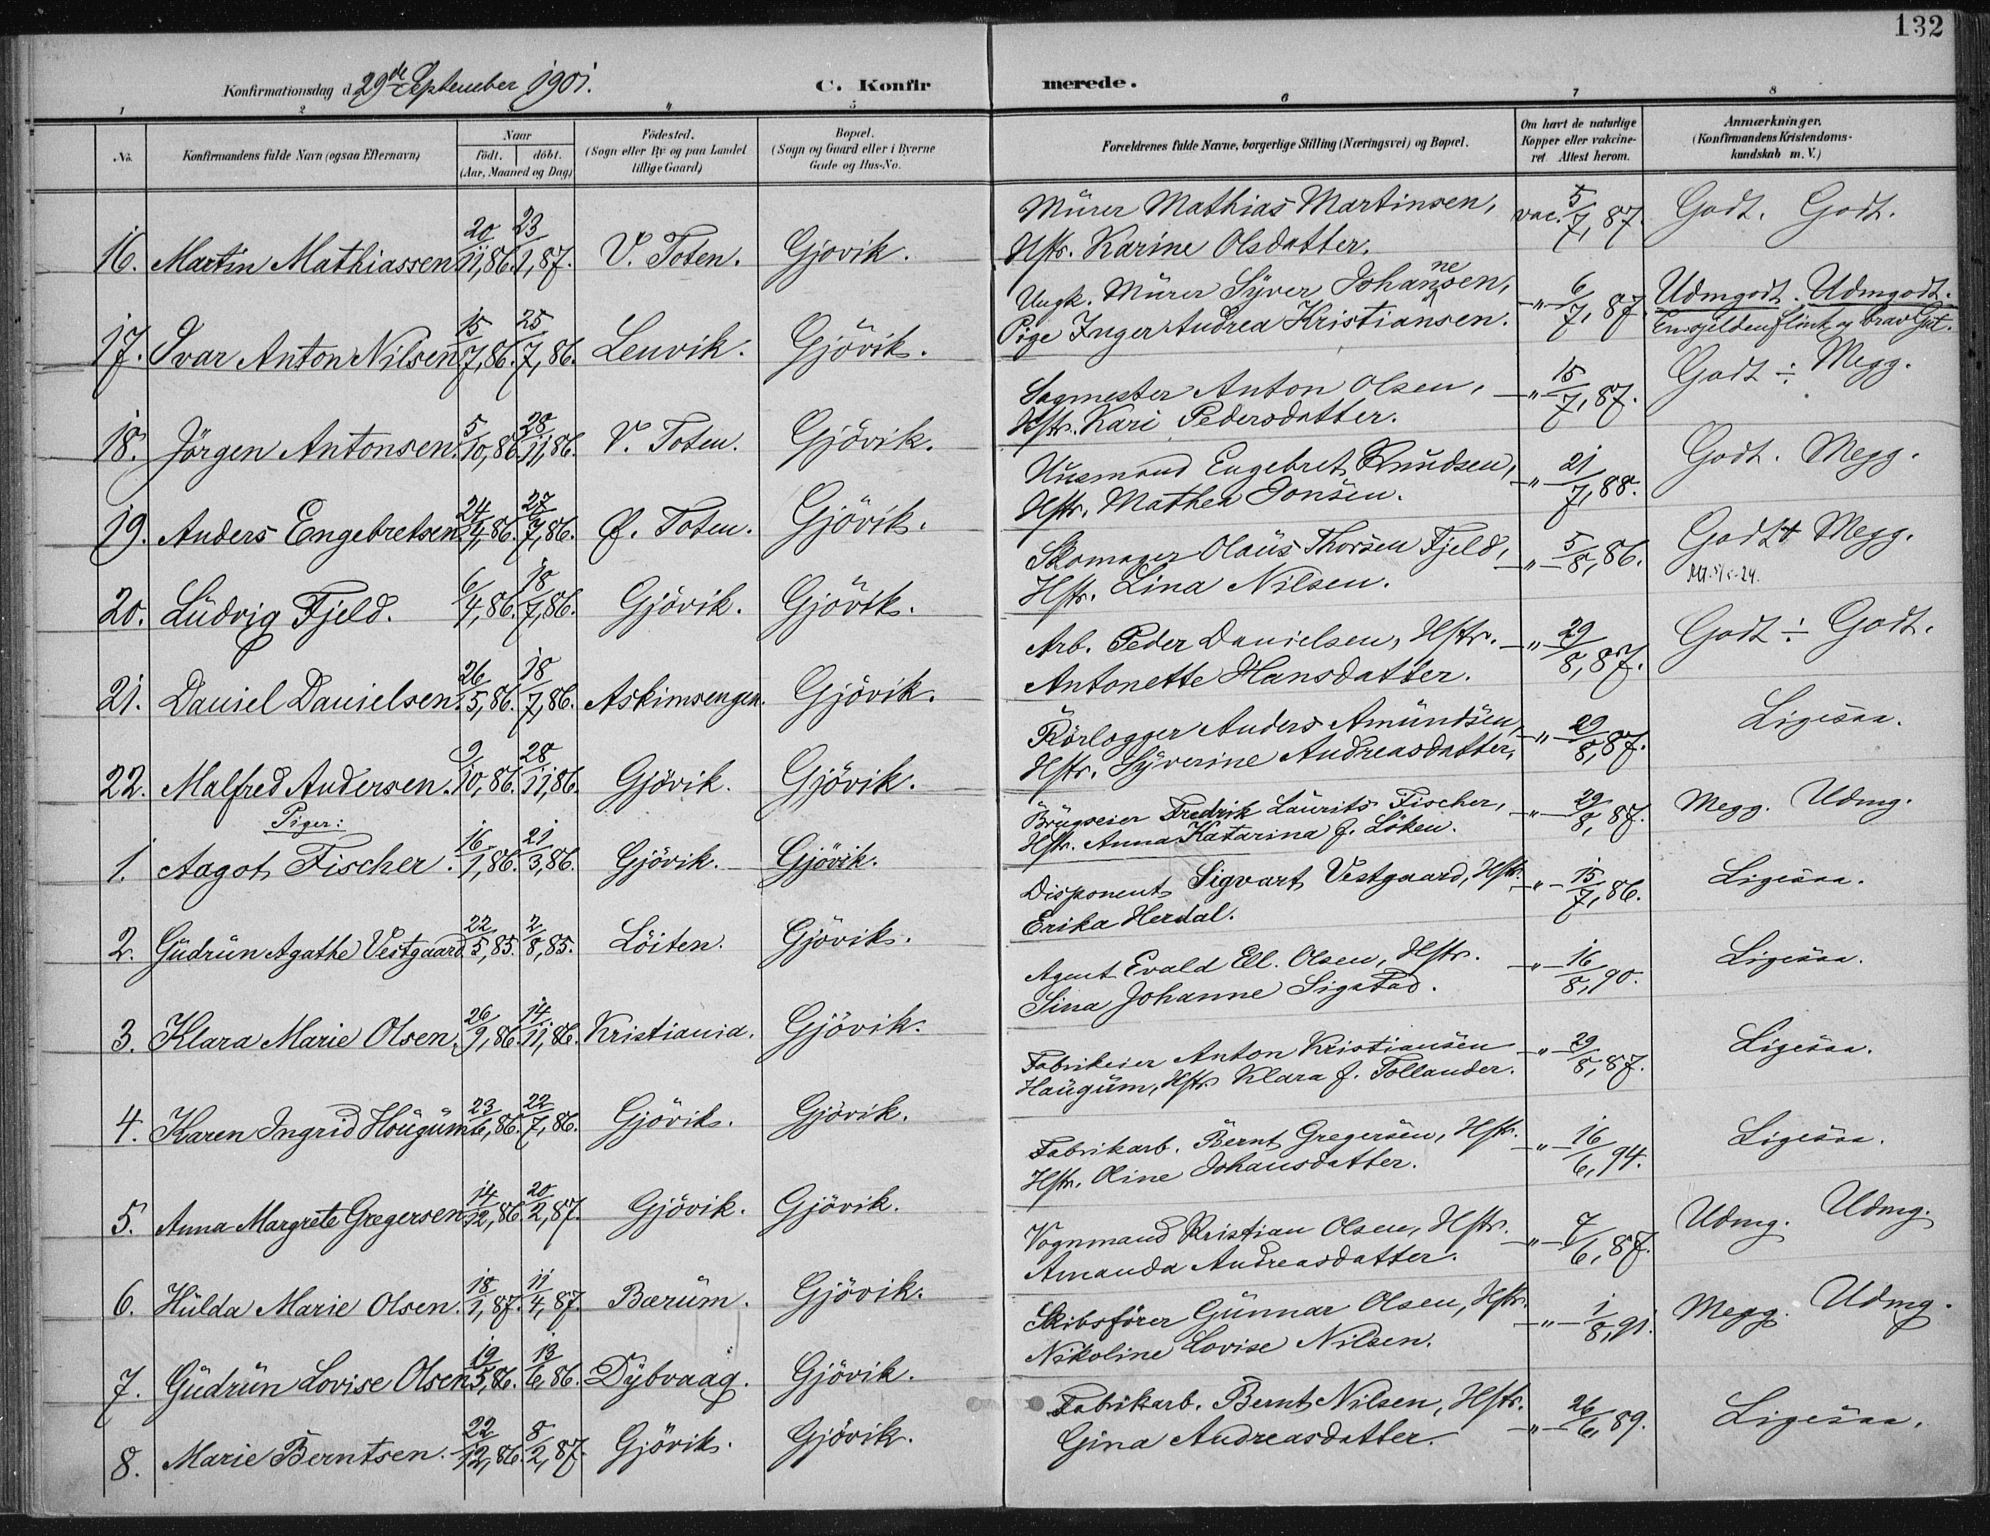 132
Konfirmationsdag d. 29de September 1901.
C. Konfirmerede.
1 2 3 4 5 6 7 8
No. Konfirmandens fulde Navn (ogsaa Efternavn) Naar født. døbt. (Aar, Maaned og Dag) Fødested. (Sogn eller By og paa Landet tillige Gaard) Bopæl. (Sogn og Gaard eller i Byerne Gade og Hus-No. Forældrenes fulde Navne, borgerlige Stilling (Næringsvei) og Bopæl. Om havt de naturlige Kopper eller vakcineret. Attest herom. Anmærkninger. (Konfirmandens Kristendomskundskab m. V.)
16. Martin Mathiassen 20/11,86. 23/1,87. V. Toten. Gjøvik. Mürer Mathias Martinsen, Hstr. Karine Olsdatter. vac. 5/7,87. Godt. Godt.
17. Ivar Anton Nilsen 15/7,86. 25/7,86. Lenvik. Gjövik. Ungk. Mürer Syver Johannesen, Pige Inger Andrea Kristiansen. -"- 6/7,87. Udmgodt. Udmgodt. En sjelden flink og brav Gut.
18. Jörgen Antonsen. 5/10,86. 28/11,86. V. Toten. Gjövik. Sagmester Anton Olsen, Hstr. Kari Pedersdatter. -"- 15/7,87. Godt ÷ Megg.
19. Anders Engebretsen 24/4,86. 27/7,86. Ø. Toten. Gjövik. Husmand Engebret Knudsen, Hstr. Mathea Jonsen. -"- 21/7,88. Godt. Megg.
20. Lüdvig Fjeld. 6/4,86. 18/7,86. Gjövik. Gjövik. Skomager Olaüs Thorsen Fjeld, Hstr. Lina Nilsen. -"- 5/8,86. Godt + Megg.
21. Daniel Danielsen. 26/5,86. 18/7,86. Askimsengen. Gjövik. Arb. Peder Danielsen, Hstr. Antonette Hansdatter. -"- 29/8,87. Godt ÷ Godt.
22. Malfred Andersen. 9/10,86. 28/11,86. Gjövik. Gjövik. Rörlægger Anders Amündsen, Hstr. Syverine Andreasdatter, -"- 29/8,87. Ligesaa.
Piger:
1. Aagot Fischer. 16/1,86. 21/3,86. Gjövik. Gjövik. Brugseier Fredrik Laurits Fischer, Hstr. Anna Katarina f. Löken. -"- 29/8,87. Megg. Udmg.
2. Güdrün Agathe Vestgaard 22/5,85. 2/8,85. Löiten. Gjövik. Disponent Sigvart Vestgaard, Hstr. Erika Herdal. -"- 15/7,86. Ligesaa.
3. Klara Marie Olsen. 26/9,86. 14/11,86. Kristiania. Gjövik. Agent Evald Ell. Olsen, Hstr. Sina Johanne Sigstad. -"- 16/8,90. Ligesaa.
4. Karen Ingrid Haügüm 23/6,86. 22/7,86. Gjövik. Gjövik. Fabrikeier Anton Kristiansen Haügüm, Hstr Klara f. Tollander. -"- 29/8,87. Ligesaa.
5. Anna Margrete Gregersen. 14/12,86. 20/2,87. Gjövik. Gjövik. Fabrikarb. Bernt Gregersen, Hstr. Hstr. Oline Johansdatter. -"- 16/6,94. Ligesaa.
6. Hülda Marie Olsen. 18/1,87. 11/4,87. Bærüm. Gjövik. Vognmand Kristian Olsen, Hstr. Amanda Andreasdatter. -"- 7/6,87. Udmg. Udmg.
7. Güdrün Lovise Olsen 19/5,86. 13/6,86. Dybvaag. Gjövik. Skibsförer Günnar Olsen, Hstr. Nikoline Lovise Nilsen. -"- 1/8,91. Megg. Udmg.
8. Marie Berntsen. 22/12,86. 8/2,87. Gjövik. Gjövik. Fabrikarb. Bernt Nilsen, Hstr. Gina Andreasdatter. -"- 26/6,89. Ligesaa.